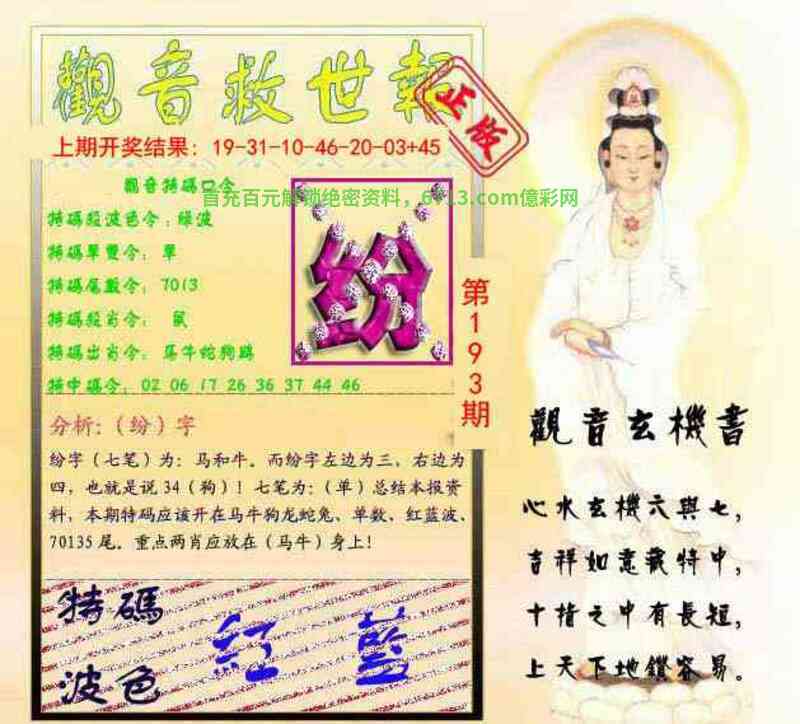 觀音救世報
正版
上期开奖结果：19-31-10-46-20-03+45
觀音特碼口令
首充百元解锁绝密资料，6713.com億彩网
特碼殺波色令：綠波
特碼單雙令：單
特碼尾數令：7013
特碼殺肖令：鼠
特碼出肖令：馬牛蛇狗
特中碼令：02 06 17 26 36 37 44 46
纷
第193期
分析：（纷）字
纷字（七笔）为：马和牛。而纷字左边为三，右边为
四，也就是说34（狗）！七笔为：（单）总结本报资
料，本期特码应该开在马牛狗龙蛇兔、单数、红蓝波、
70135尾。重点两肖应放在（马牛）身上！
特碼
波色
紅 藍
觀音玄機書
心水玄機六與七，
吉祥如意藏特中，
十指之中有長短，
上天下地鑽容易。